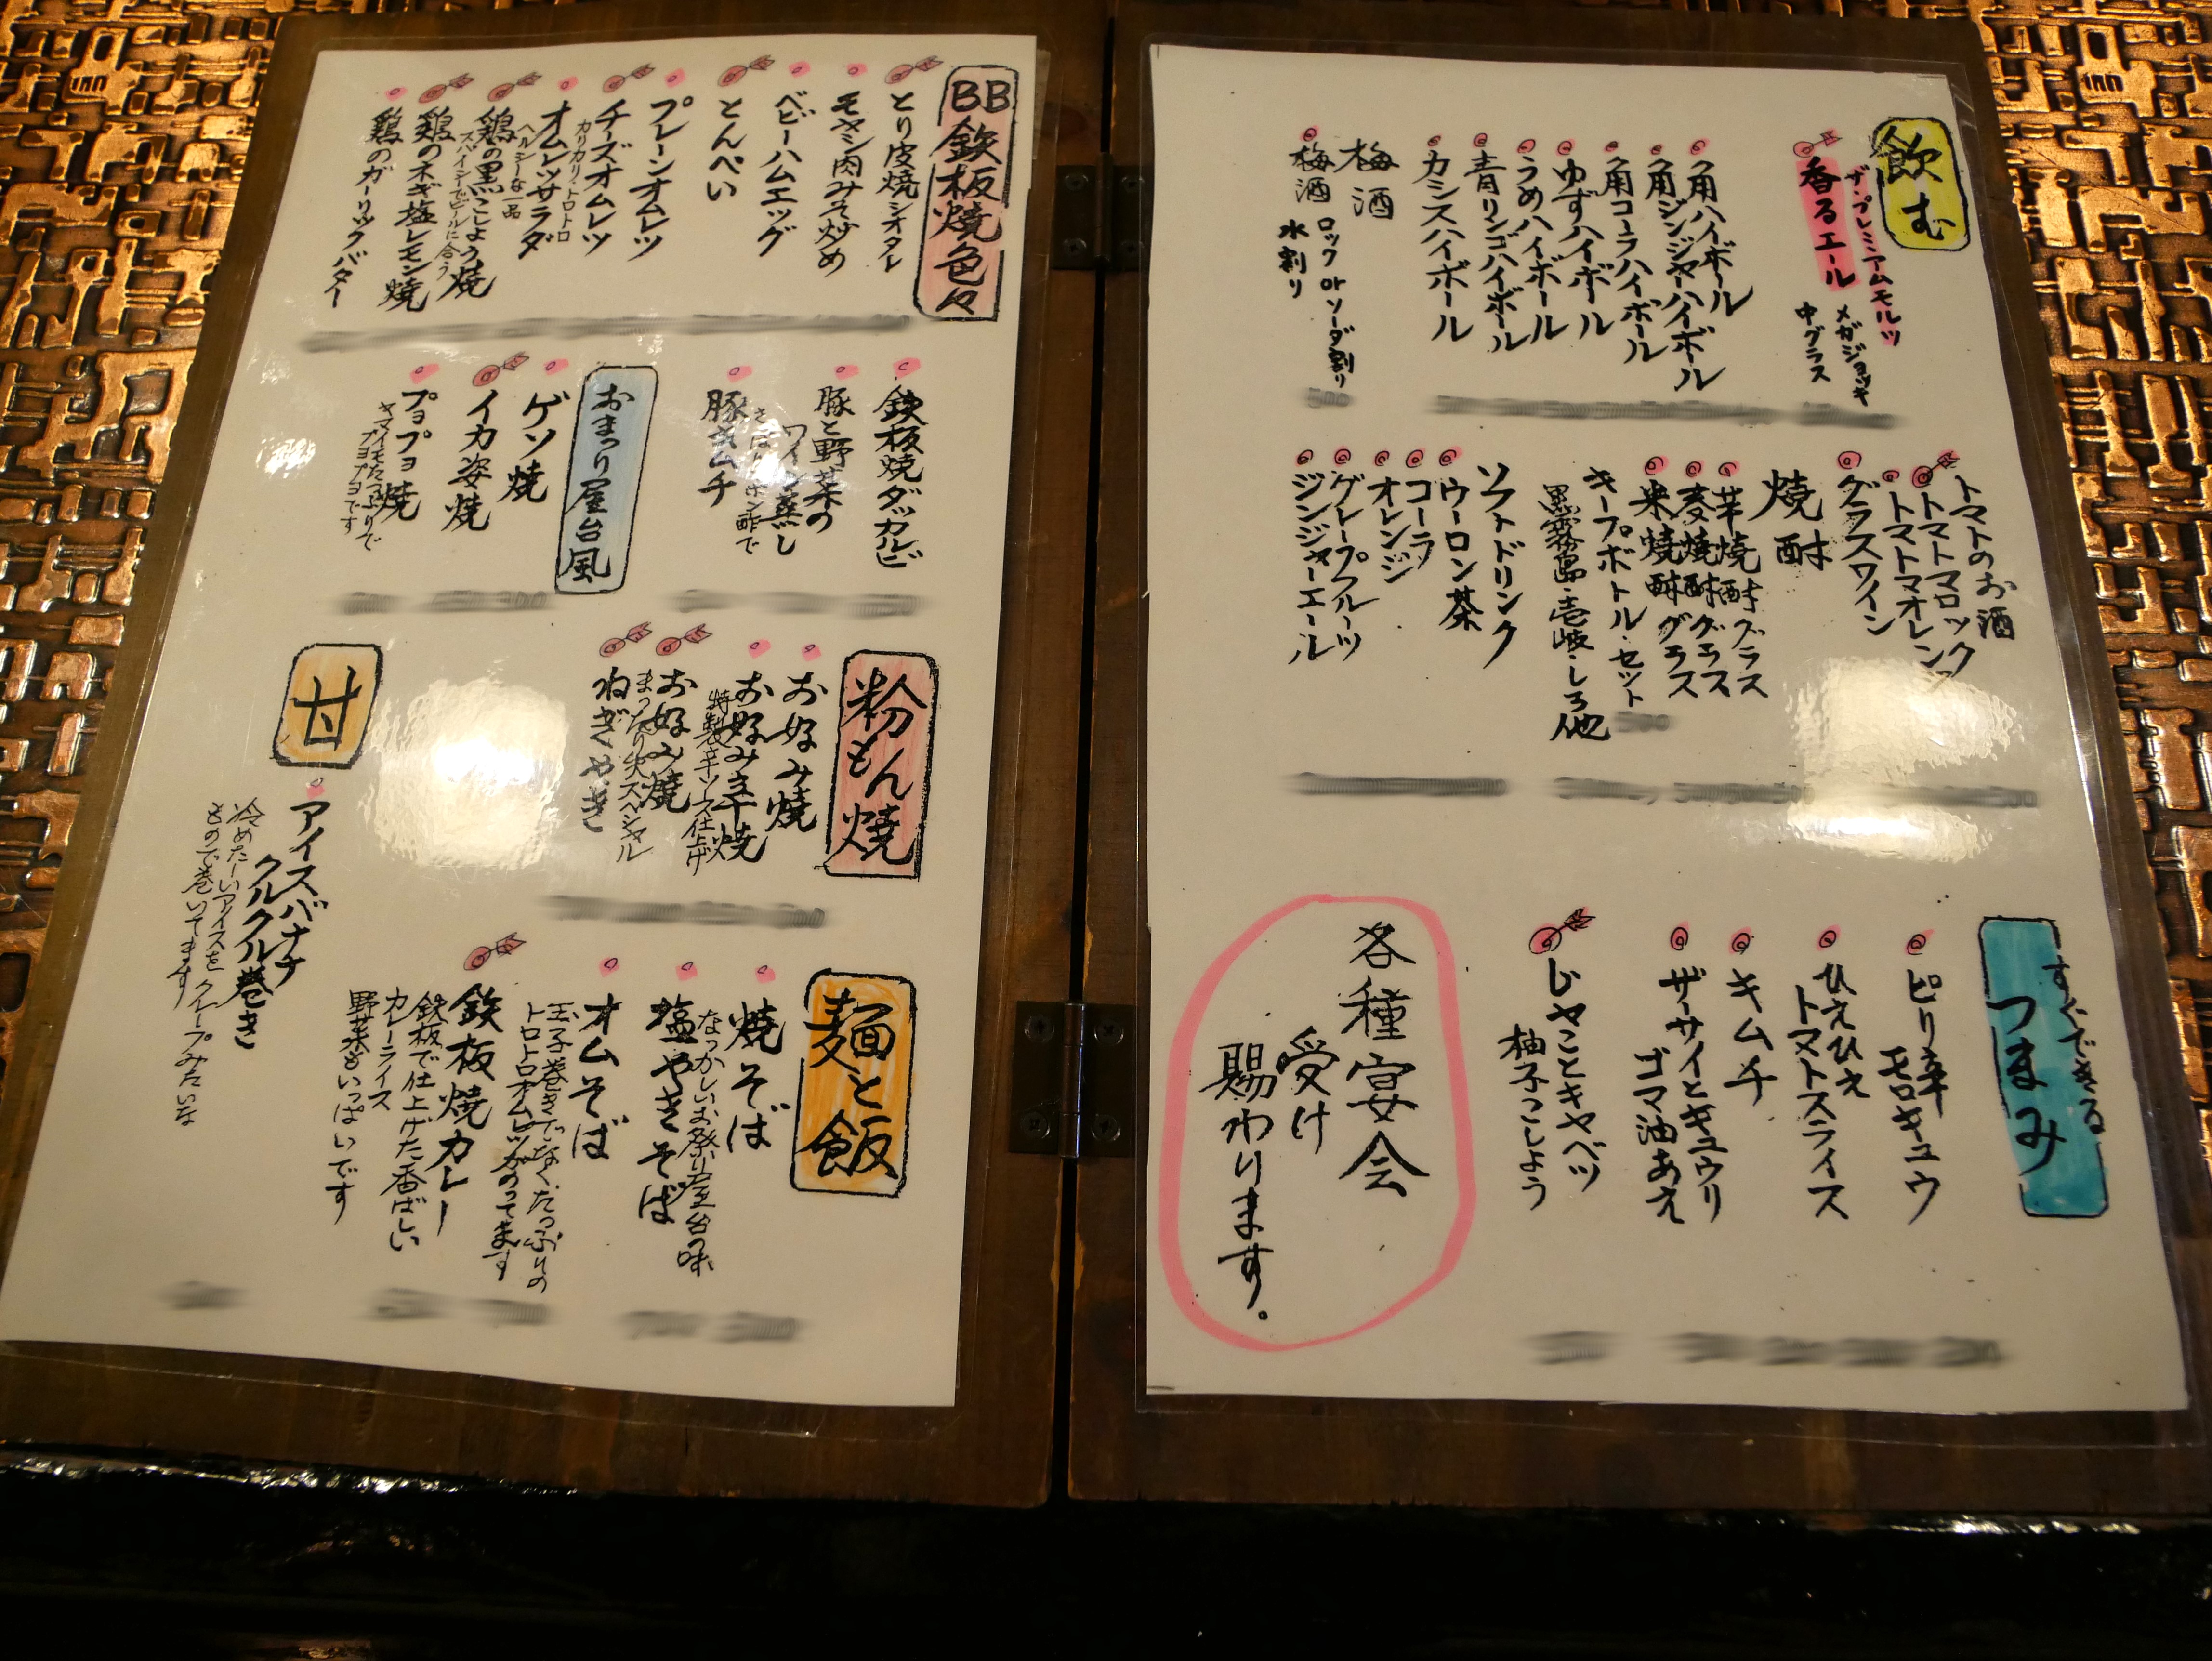 飲む
ザ・プレミアムモルツ
香るエール
メガジョッキ
中グラス
角ハイボール
角ジンジャーハイボール
角コーラハイボール
ゆずハイボール
うめハイボール
青リンゴハイボール
カシスハイボール
梅酒
梅酒 ロック or ソーダ割り
水割り
トマトのお酒
トマトマロック
トマトマオレンジ
グラスワイン
焼酎
芋焼酎グラス
麦焼酎グラス
米焼酎グラス
キープボトル・セット
黒霧島・壱岐・しろ他
ソフトドリンク
ウーロン茶
コーラ
オレンジ
グレープフルーツ
ジンジャーエール
すぐできる
つまみ
ピリ辛
モロキュウ
ひえひえ
トマトスライス
キムチ
ザーサイとキュウリ
ゴマ油あえ
じゃことキャベツ
柚子こしょう
各種宴会
受け
賜わります。
BB鉄板焼色々
とり皮焼シオタレ
モヤシ肉みそ炒め
ベビーハムエッグ
とんぺい
プレーンオムレツ
チーズオムレツ
カリカリ、トロトロ
オムレツサラダ
ヘルシーな一品
鶏の黒こしょう焼
スパイシーでビールに合う
鶏のネギ塩レモン焼
鶏のガーリックバター
鉄板焼ダッカルビ
豚と野菜の
ワイン蒸し
さっぱりポン酢で
豚キムチ
おまつり屋台風
ゲソ焼
イカ姿焼
プヨプヨ焼
ヤマイモたっぷりで
プヨプヨです
粉もん焼
お好み焼
お好み辛焼
特製辛ソース仕上げ
お好み焼
まったり矢スペシャル
ねぎやき
甘
アイスバナナ
クルクル巻き
冷めたーいアイスをクレープみたいな
もので巻いてます
麺と飯
焼そば
なつかしいお祭り屋台の味
塩やきそば
オムそば
玉子巻きでなく、たっぷりの
トロトロオムレツがのってます
鉄板焼カレー
鉄板で仕上げた香ばしい
カレーライス
野菜もいっぱいです